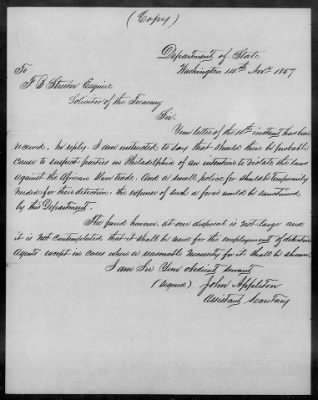 (Copy)
Department of State
Washington 14th Novr. 1857
To
F. B. Streeter Esquire
Solicitor of the Treasury
Sir.
Your letter of the 10th instant has been
received. In reply I am instructed to say that should there be probable
cause to suspect parties in Philadelphia of an intention to violate the laws
against the African Slave trade. And a small police force should be temporarily
needed for their detection, the expense of such a force would be sanctioned
by this Department.
The fund however at our disposal is not large and
it is not contemplated that it shall be used for the employment of detective
Agents except in cases where a reasonable necessity for it shall be shown
I am Sir Your obedient servant
(signed) John Appleton
Assistant Secretary